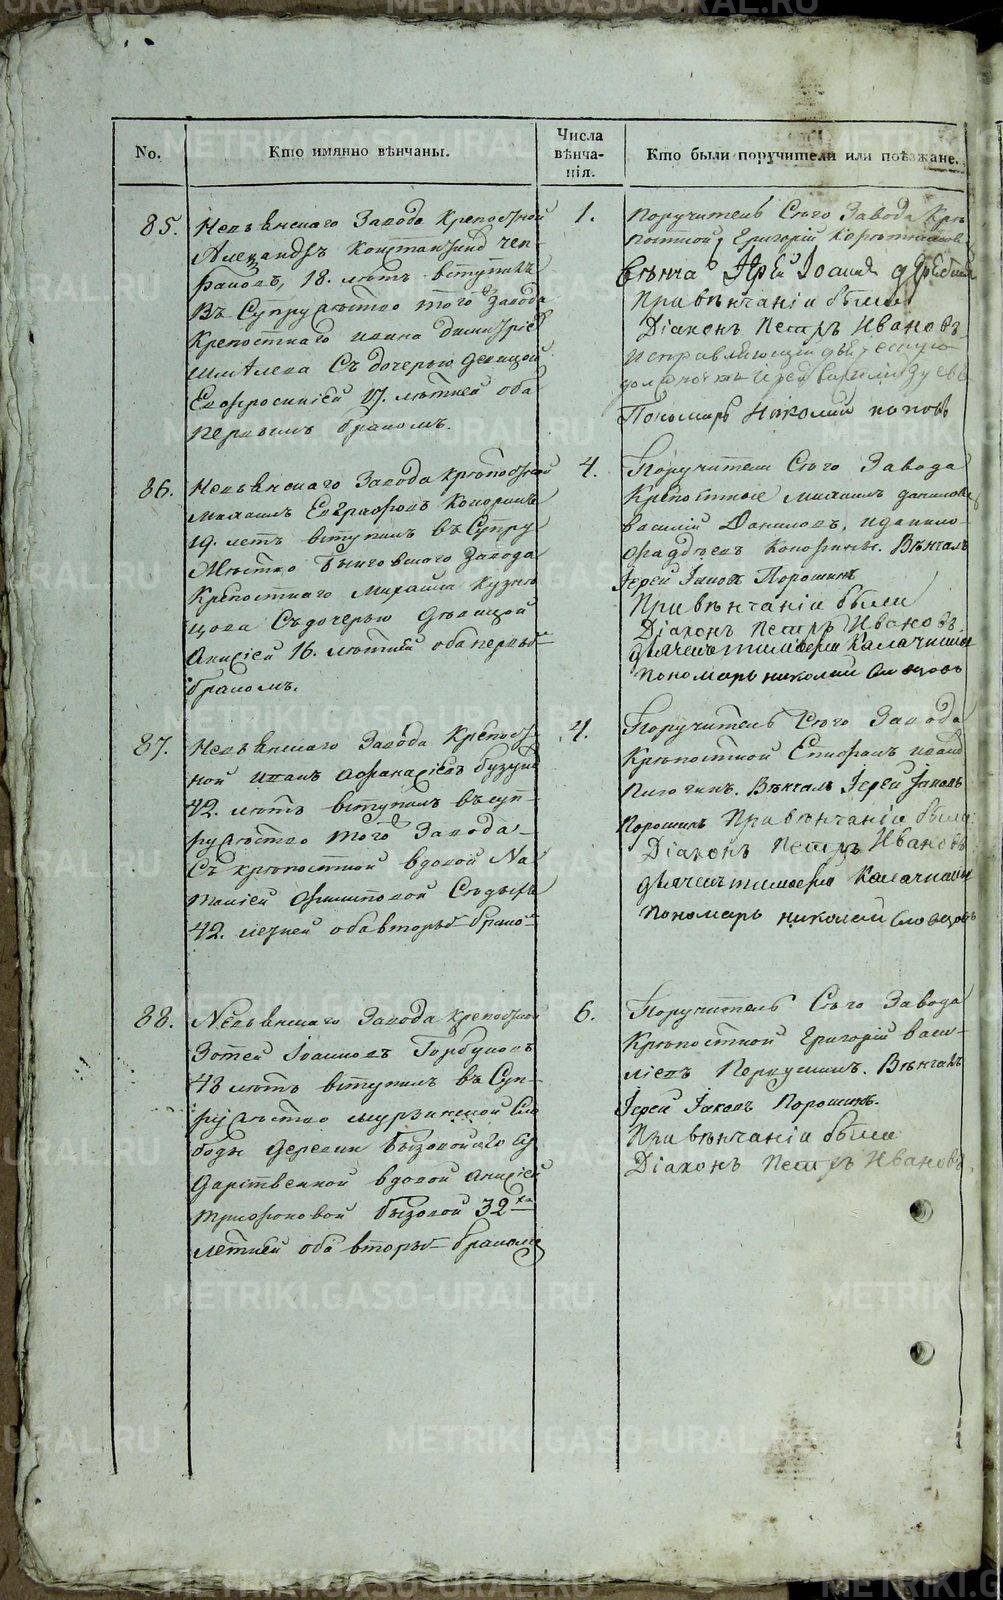 No.
Кто имянно вѣнчаны.
Числа
вѣнча-
нія.
Кто были поручители или поѣзжане.
85.
Невьянскаго Завода крепостной
Александръ Константинов
18. лѣтъ вступилъ
Въ Супружество того Завода
Крепостнаго Ивана Димитріев
Съ дочерью девицой
Евфросиніей 17. лѣтней оба
первымъ бракомъ.
1.
Поручитель Сего Завода Кре
постной Григорій
Вѣнча Іерей Іоаннъ
При вѣнчаніи были
Діаконъ Петръ Ивановъ
Исправляющій
должность Іерей Василій Зуевъ
Пономарь Николай Поповъ
86.
Невьянскаго Завода крѣпостной
Михаилъ Евграфовъ
19. летъ вступилъ въ Супру
жество Быньговскаго Завода
Крепостнаго Михаила Кузне
цова Съ дочерью Дѣвицой
Анисіей 16. лѣтней оба первы
бракомъ.
4.
Поручители Сего Завода
Крѣпостные Михаилъ Даниловъ
Василій Даниловъ,
Вѣнчалъ
Іерей Іаковъ Порошинъ
При вѣнчаніи были
Діаконъ Петръ Ивановъ.
дьячекъ Тимофей Калачниковъ
пономарь николай Словцовъ
87.
Невьянскаго Завода Крепост
ной Иванъ Афанасіевъ
42. лѣтъ вступилъ въ суп-
ружество того Завода
Съ крѣпостной вдовой На
таліей Филиповой
42. летней оба вторы брако
4.
Поручитель Сего Завода
Крѣпостной Епифанъ Иванов
Вѣнчалъ Іерей Іаковъ
Порошинъ При вѣнчаніи были
Діаконъ Петръ Ивановъ
дьячекъ тимофей Калачников
пономарь николай Словцовъ
88.
Невьянскаго Завода крепостной
Зотей Іоанновъ Горбуновъ
48 лѣтъ вступилъ въ Суп-
ружество мурзинской Сло
боды деревни Бызовой Госу
дарственной вдовой Анисіей
Трифоновой Бызовой 32х
летней оба вторы бракомъ
6.
Поручитель Сего Завода
Крѣпостной Григорій Васи-
ліевъ Вѣнчалъ
Іерей Іаковъ Порошинъ.
При вѣнчаніи были
Діаконъ Петръ Ивановъ
METRIKI.GASO-URAL.RU